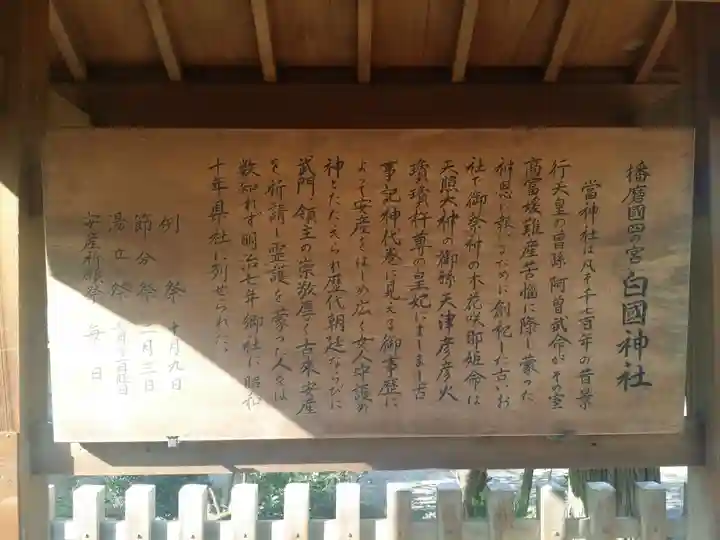 播磨國四の宮 白國神社
當神社は凡そ千七百年の昔景
行天皇の曽孫 阿曽武命がその室
高富媛難産苦悩に際し蒙った
神恩に報ゆるために創祀した古いお
社で御祭神の木花咲耶姫命は
天照大神の御孫天津彦彦火
瓊瓊杵尊の皇妃にましまし古
事記神代巻に見える御事歴に
よって安産をはじめ広く女人守護の
神とたたえられ歴代朝廷ならびに
武門、領主の崇敬厚く古来安産
を祈請し霊護を蒙った人々は
数知れず明治七年郷社に昭和
十年県社に列せられた。
例祭 十月九日
節分祭 二月三日
湯立祭
安産祈願祭 毎日